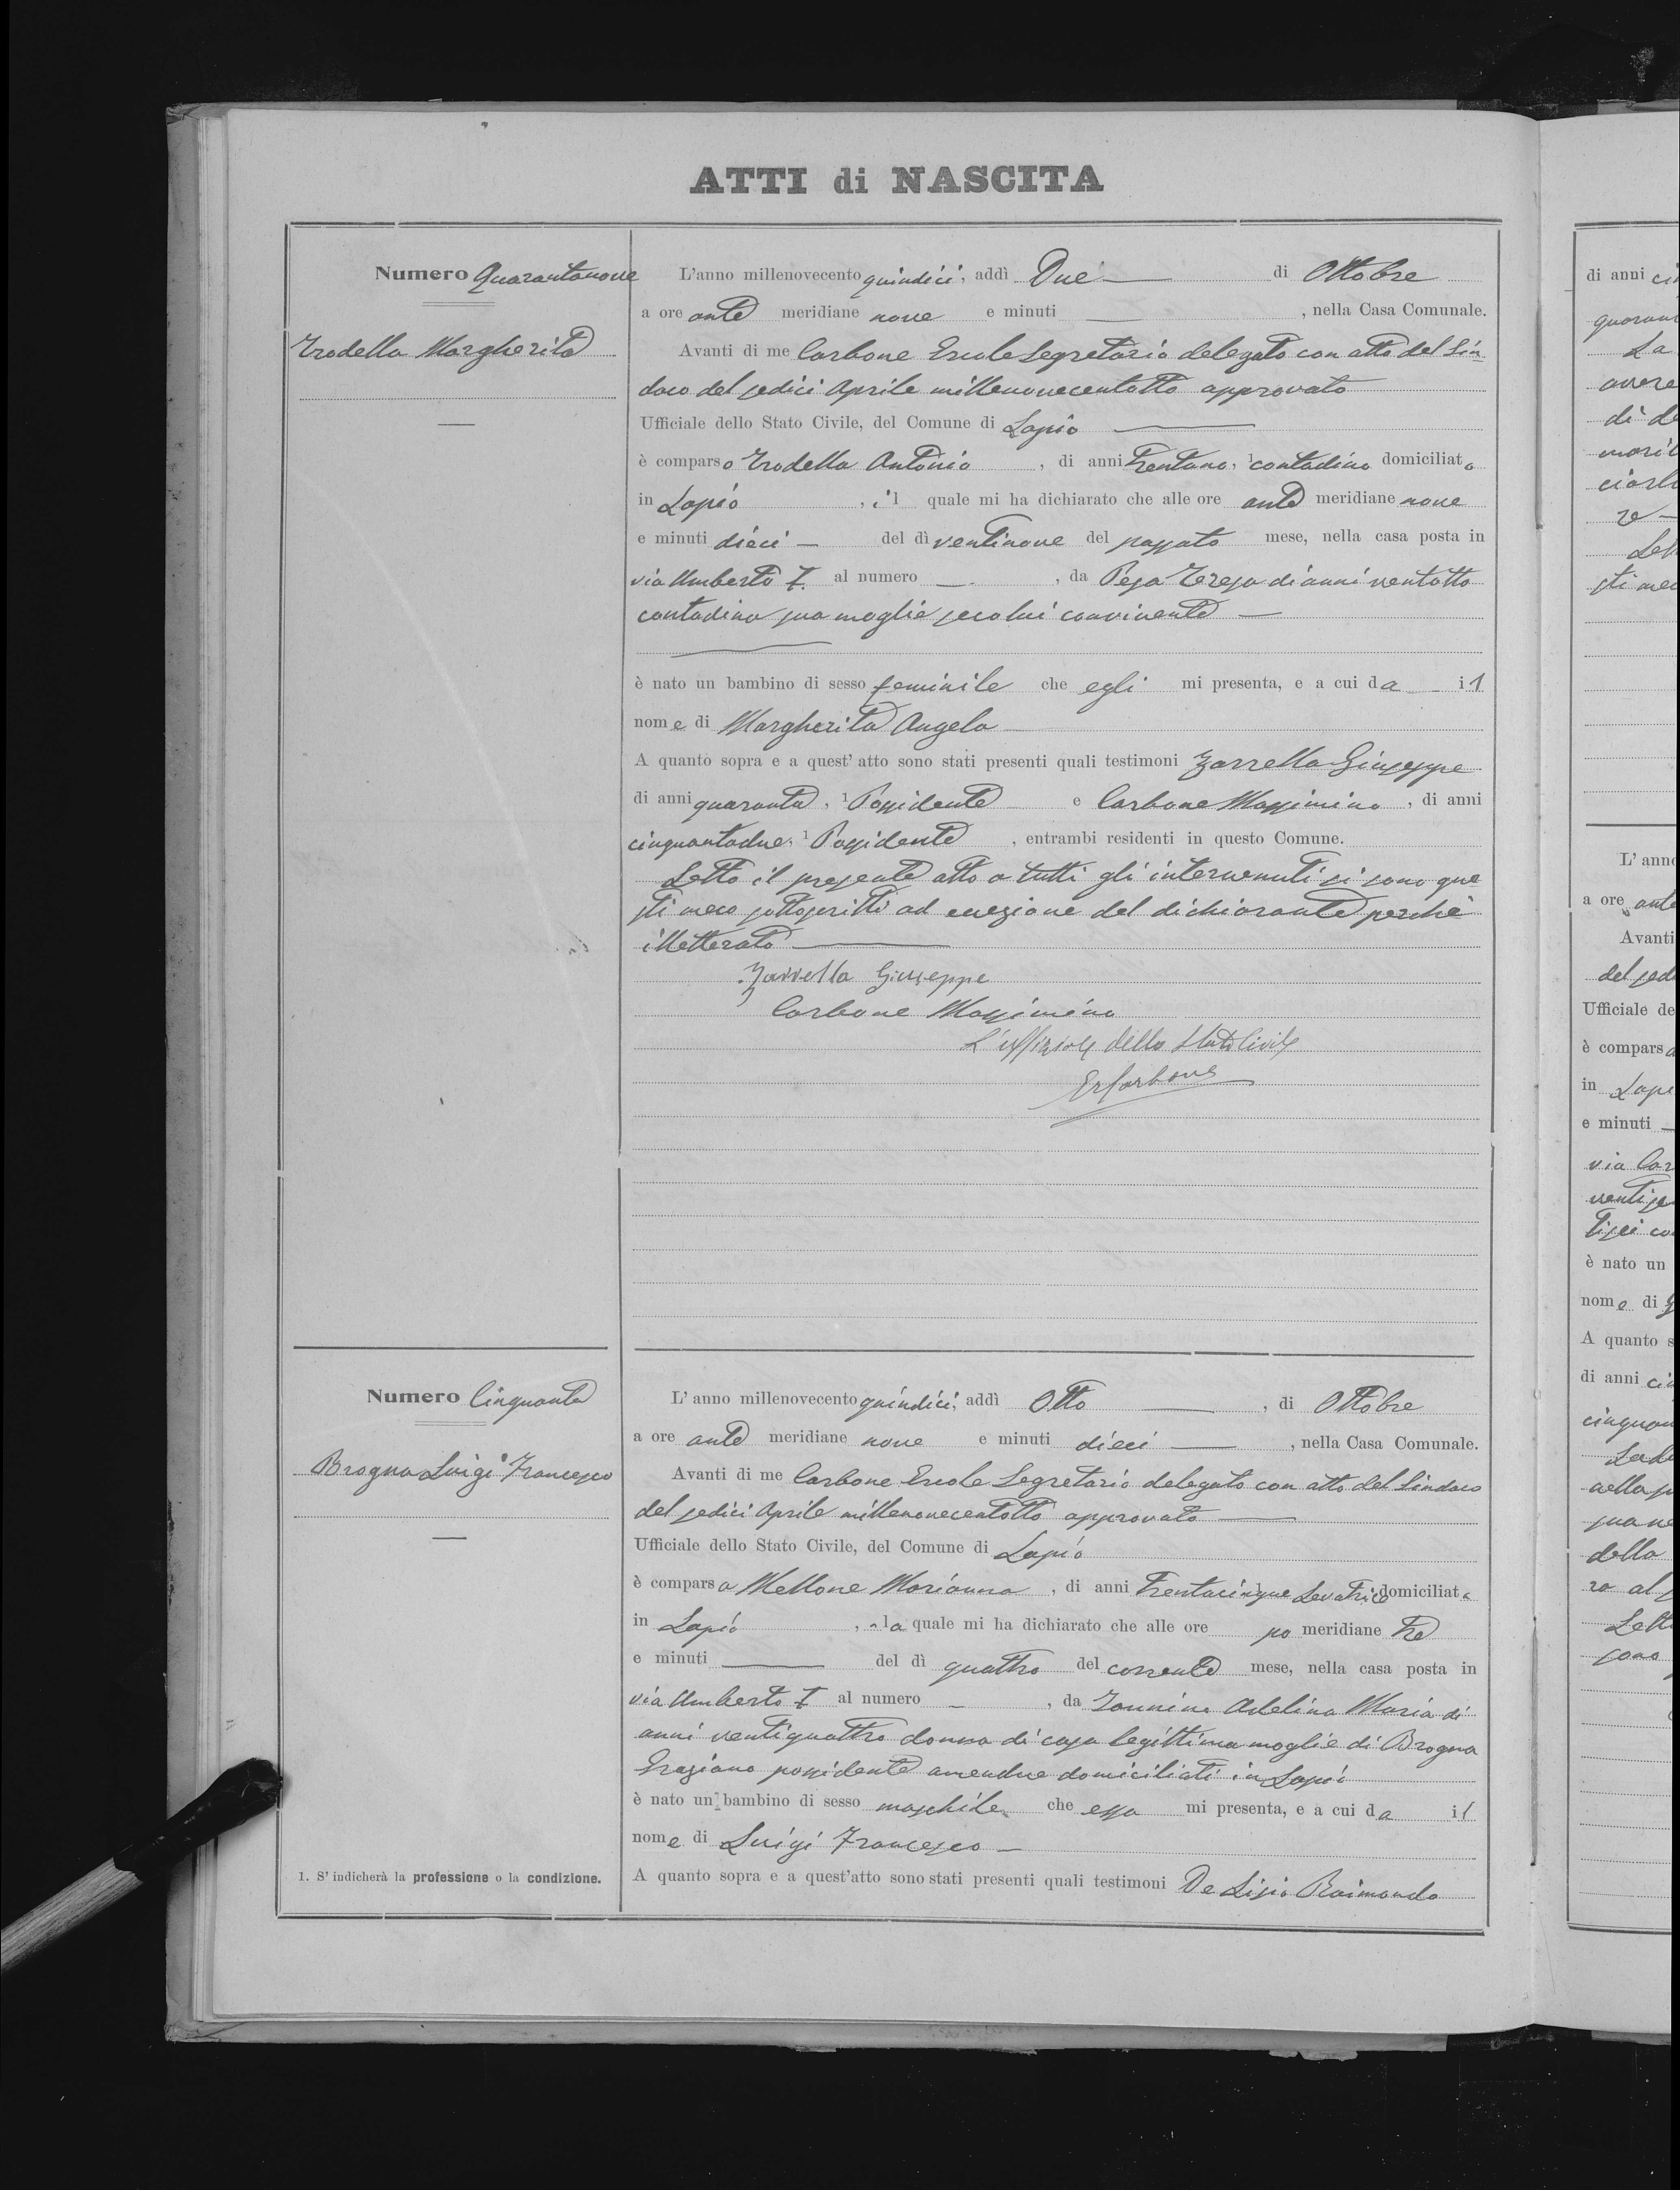 ATTI di NASCITA
Numero Quarantanove
Trodella Margherita
L'anno millenovecento quindici, addì Due di Ottobre
a ore ante meridiane nove e minuti , nella Casa Comunale.
Avanti di me Carbone Ercole Segretario delegato con atto del Sin-
daco del sedici Aprile millenovecentotto approvato
Ufficiale dello Stato Civile, del Comune di Lapio
è comparso Trodella Antonio, di anni trentuno, 1 contadino domiciliato
in Lapio, il quale mi ha dichiarato che alle ore ante meridiane nove
e minuti dieci del dì ventinove del passato mese, nella casa posta in
via Umberto I. al numero , da Pesa Teresa di anni ventotto
contadina sua moglie secolui convivente
è nato un bambino di sesso feminile che egli mi presenta, e a cui da il
nome di Margherita Angela
A quanto sopra e a quest'atto sono stati presenti quali testimoni Zarrella Giuseppe
di anni quaranta, 1 Possidente e Carbone Massimino, di anni
cinquantadue, 1 Possidente, entrambi residenti in questo Comune.
Letto il presente atto a tutti gli intervenuti si sono que
sti meco sottoscritti ad eccezione del dichiarante perchè
illetterato
Zarrella Giuseppe
Carbone Massimino
L'uffiziale dello Stato Civile
ErCarbone
Numero Cinquanta
Brogna Luigi Francesco
L'anno millenovecento quindici, addì Otto, di Ottobre
a ore ante meridiane nove e minuti dieci, nella Casa Comunale.
Avanti di me Carbone Ercole Segretario delegato con atto del Sindaco
del sedici Aprile millenovecentotto approvato
Ufficiale dello Stato Civile, del Comune di Lapio
è comparsa Mellone Marianna, di anni trentacinque Levatrice domiciliata
in Lapio, la quale mi ha dichiarato che alle ore po meridiane tre
e minuti del dì quattro del corrente mese, nella casa posta in
via Umberto I al numero , da Iannino Adelina Maria di
anni ventiquattro donna di casa legittima moglie di Brogna
Graziano possidente amendue domiciliati in Lapio
è nato un bambino di sesso maschile che essa mi presenta, e a cui da il
nome di Luigi Francesco
A quanto sopra e a quest'atto sono stati presenti quali testimoni De Lisio Raimondo
1. S'indicherà la professione o la condizione.
di anni
La
di
in
e minuti
è nato un
nome di
A quanto
di anni
L'anno
a ore ante
Avanti
Ufficiale
è comparsa
della